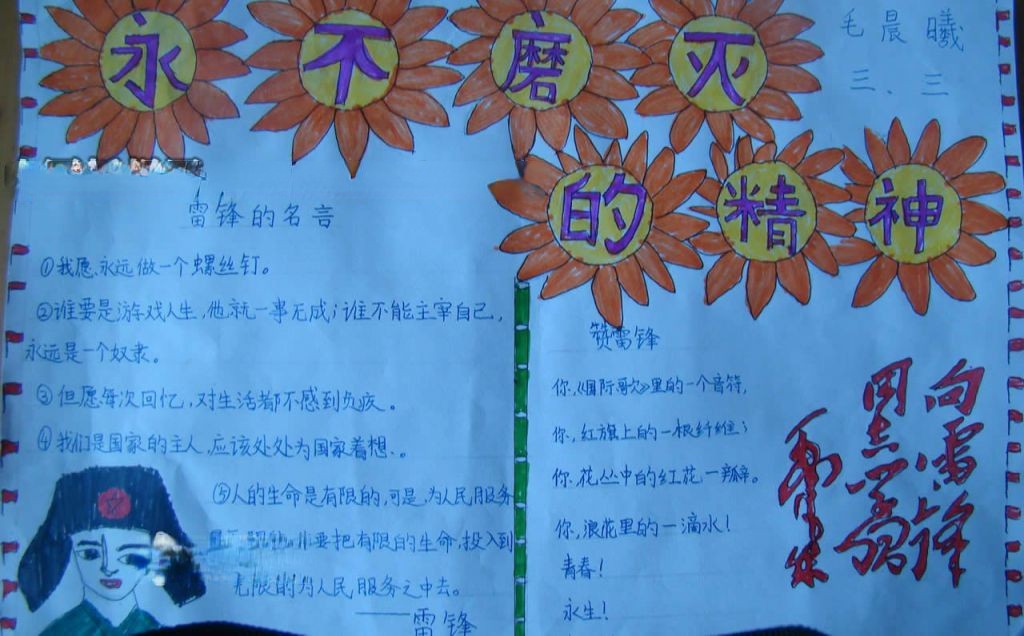 永不磨灭
的精神
毛晨曦
三.三
雷锋的名言
①我愿永远做一个螺丝钉。
②谁要是游戏人生,他就一事无成;谁不能主宰自己,
永远是一个奴隶。
③但愿每次回忆,对生活都不感到负疚。
④我们是国家的主人,应该处处为国家着想.。
⑤人的生命是有限的,可是,为人民服务
要把有限的生命,投入到
无限的为人民服务之中去。
——雷锋
赞雷锋
你,《国际歌》里的一个音符,
你,红旗上的一根纤维;
你.花丛中的红花一瓣。
你,浪花里的一滴水!
青春!
永生!
向雷锋
同志学习
毛泽东